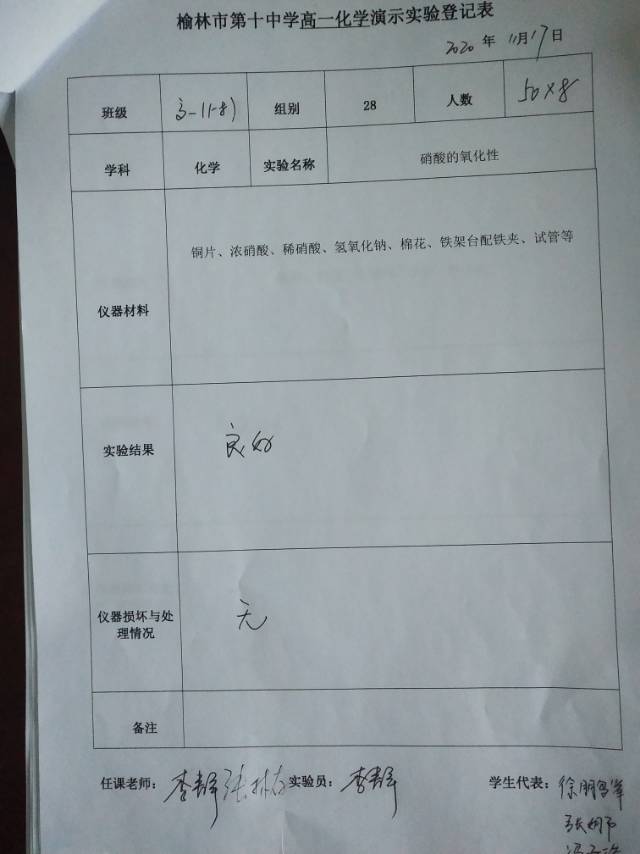 榆林市第十中学高一化学演示实验登记表
2020 年 11月17日
班级 高一(1-8) 组别 28 人数 50×8
学科 化学 实验名称 硝酸的氧化性
仪器材料 铜片、浓硝酸、稀硝酸、氢氧化钠、棉花、铁架台配铁夹、试管等
实验结果 良好
仪器损坏与处
理情况 无
备注
任课老师： 李静 实验员： 李静 学生代表：